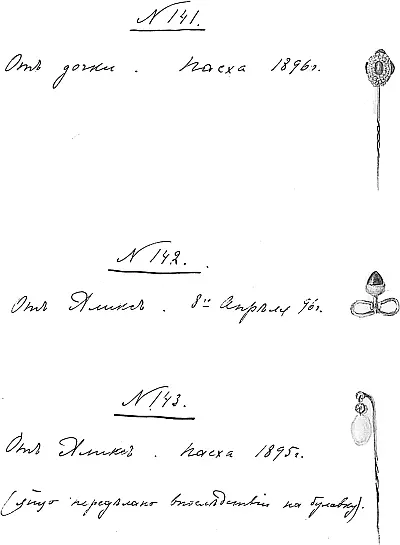 N 141.
Отъ дочки. Пасха 1896 г.
N 142.
Отъ Аликсъ. 8го Апрѣля 96 г.
N 143.
Отъ Аликсъ. Пасха 1895 г.
(яйцо передѣлано впослѣдствіи на булавку).